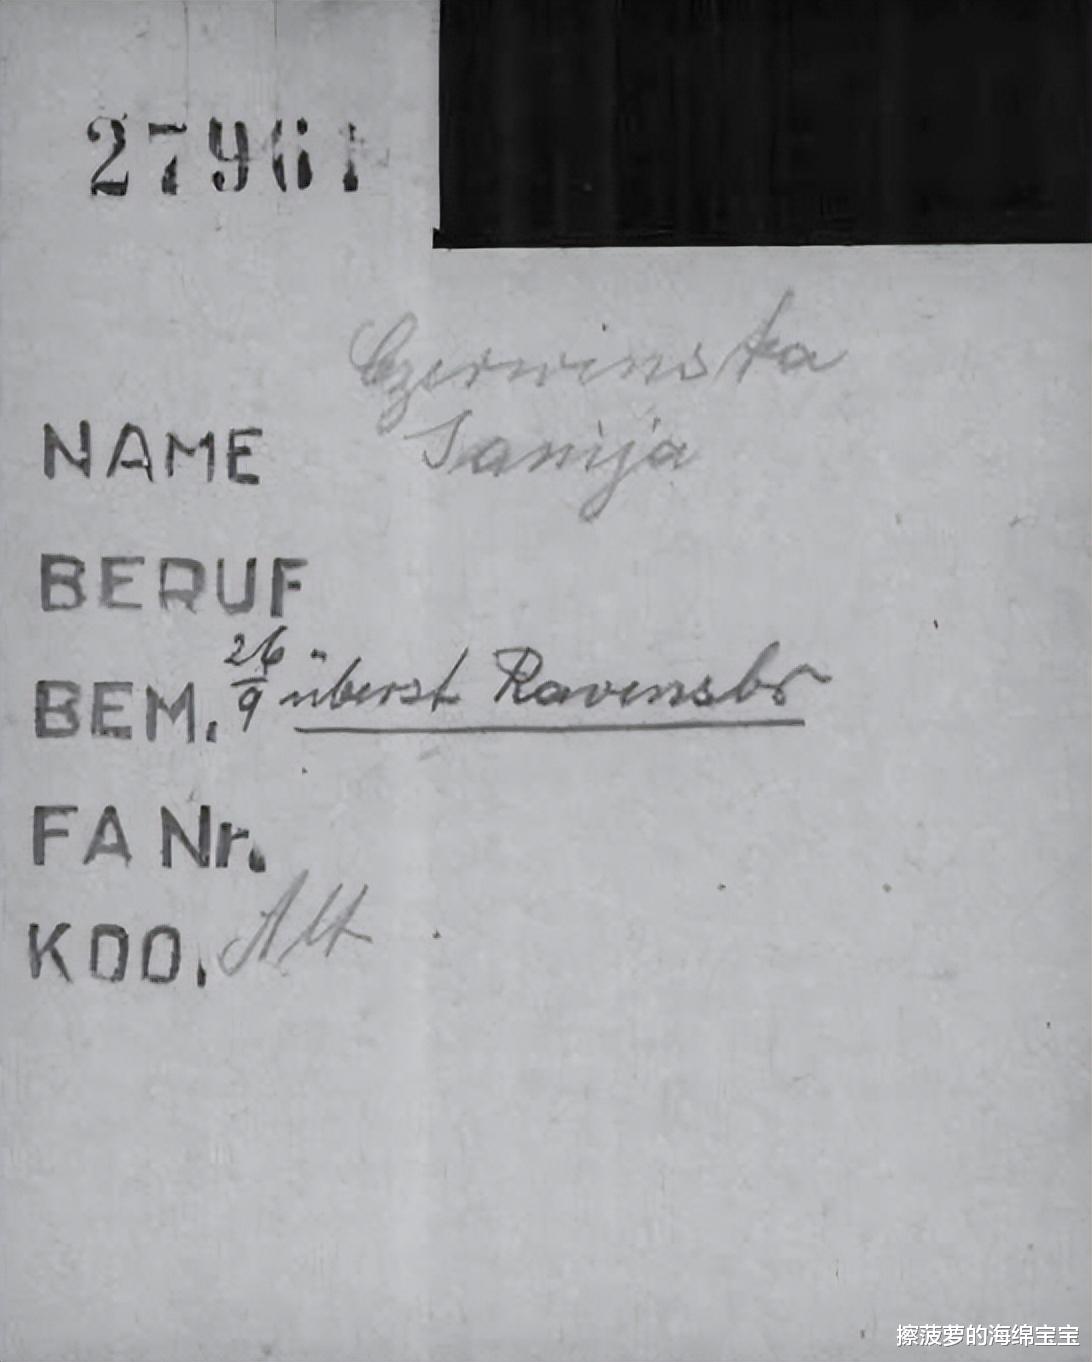 27961
Czerwinska
NAME Janija
BERUF
BEM. 26/9 überst Ravensbr
FA Nr.
KDO. Alt
擦菠萝的海绵宝宝